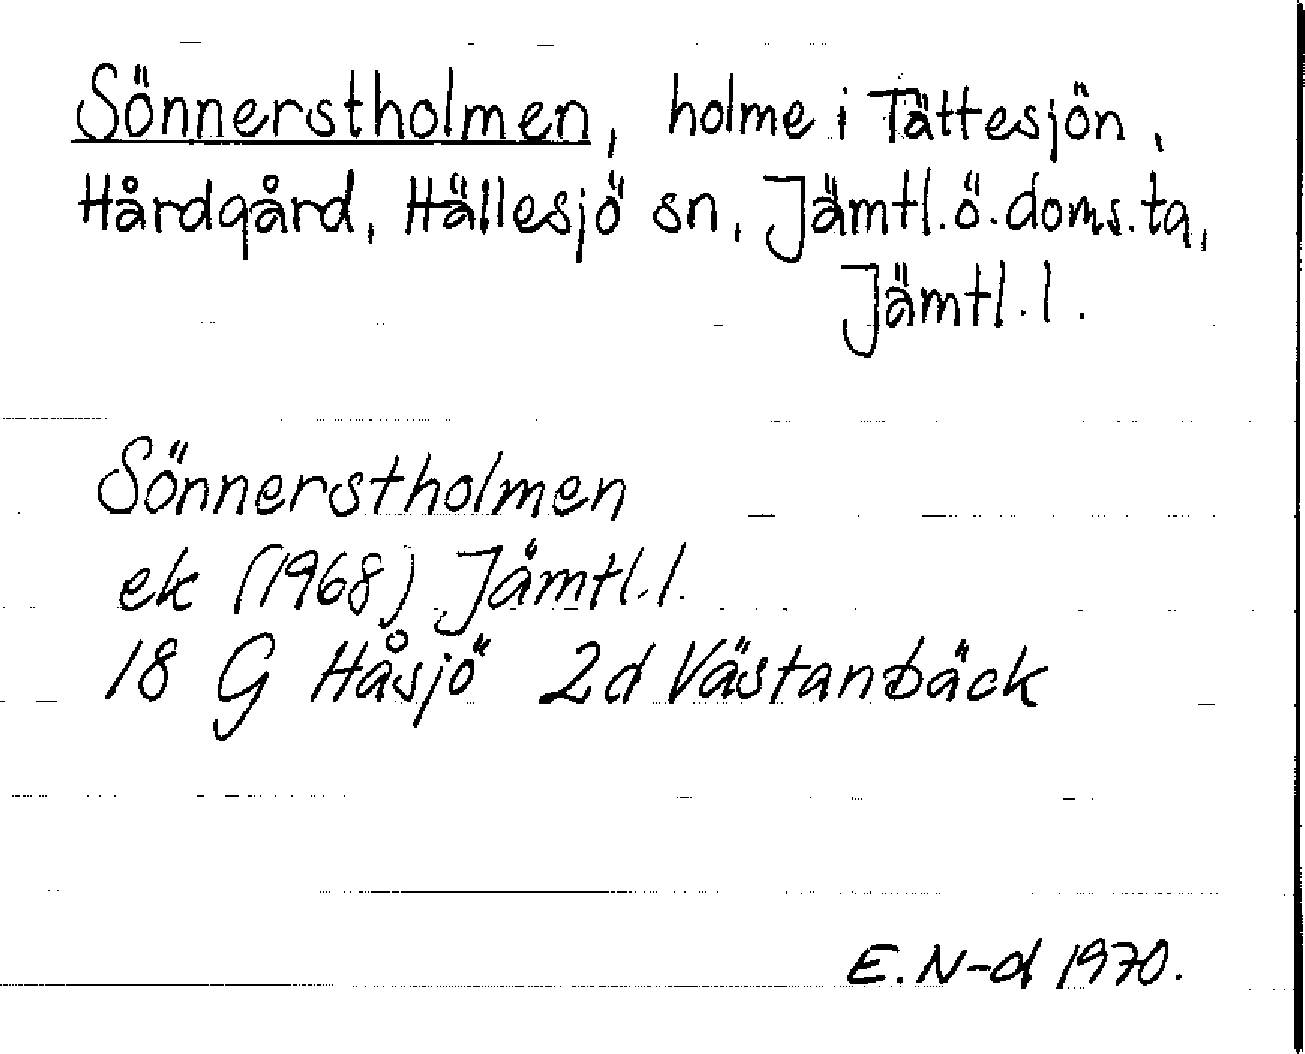 Sönnerstholmen, holme i Tättesjön,
Hårdgård, Hällesjö sn, Jämtl.ö.doms.ta,
Jämtl.l.
Sönnerstholmen
ek (1968) Jämtl.l.
18 G Håsjö 2d Västanbäck
E.N-d 1970.